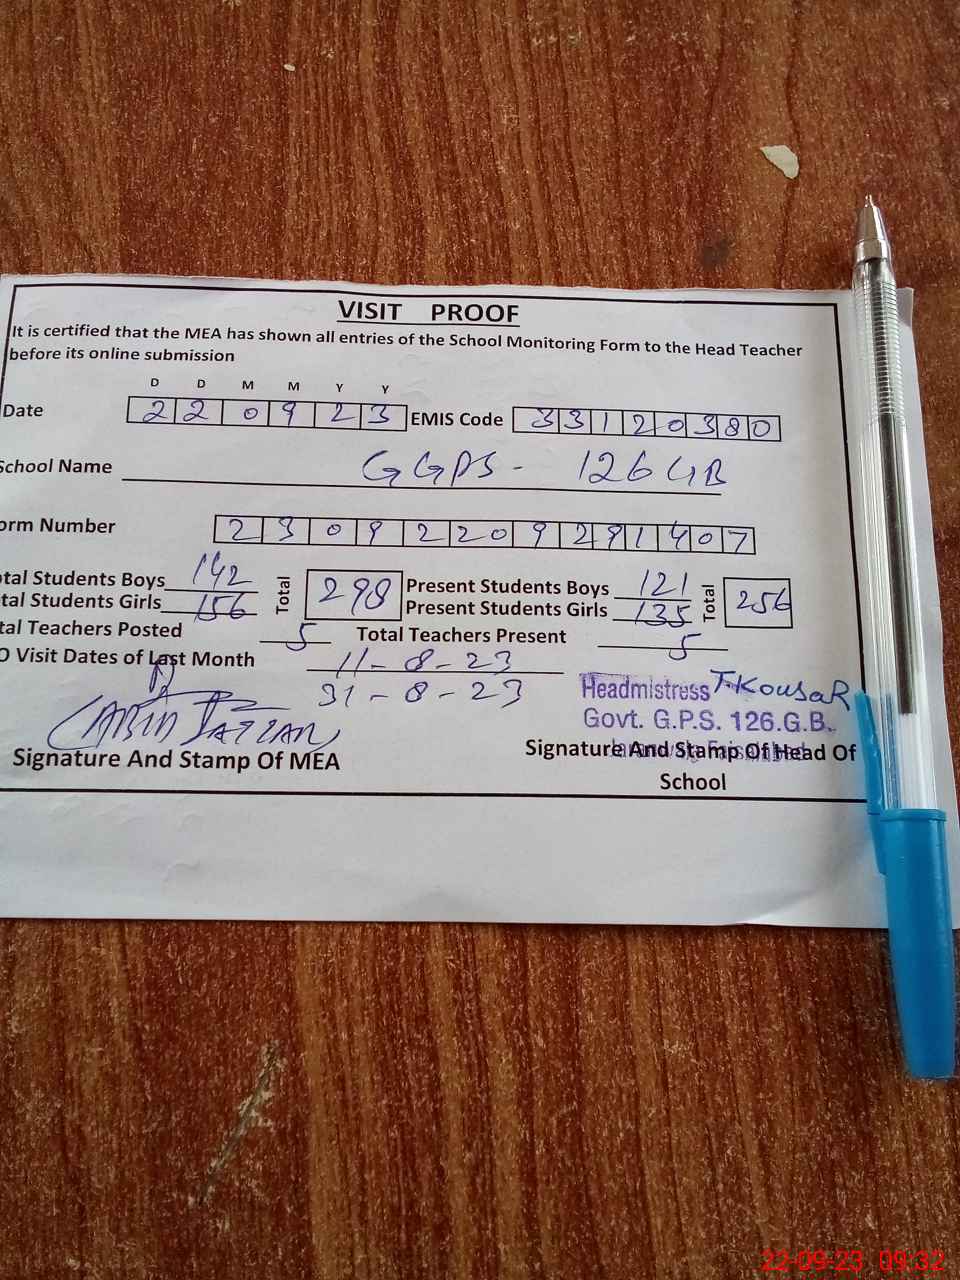 VISIT PROOF
It is certified that the MEA has shown all entries of the School Monitoring Form to the Head Teacher
before its online submission
D D M M Y Y
Date 2 2 0 9 2 3 EMIS Code 3 3 1 2 0 3 8 0
School Name GGPS - 126 GB
orm Number 2 3 0 9 2 2 0 9 2 9 1 4 0 7
tal Students Boys 142 Total 298 Present Students Boys 121 Total 256
tal Students Girls 156 Present Students Girls 135
tal Teachers Posted 5 Total Teachers Present 5
O Visit Dates of Last Month 11-8-23
31-8-23
Headmistress T.KousaR
Govt. G.P.S. 126.G.B.
Signature And Stamp Of MEA Signature And Stamp Of Head Of
School
22-09-23 09:32